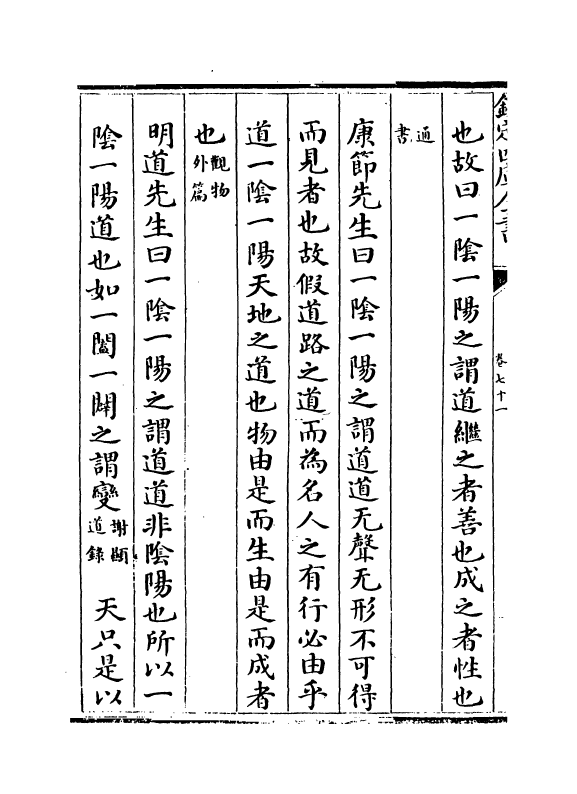 欽定四庫全書
卷七十一
也故曰一陰一陽之謂道繼之者善也成之者性也
通書
康節先生曰一陰一陽之謂道道无聲无形不可得
而見者也故假道路之道而為名人之有行必由乎
道一陰一陽天地之道也物由是而生由是而成者
也觀物外篇
明道先生曰一陰一陽之謂道道非陰陽也所以一
陰一陽道也如一闔一闢之謂變謝顯道錄 天只是以